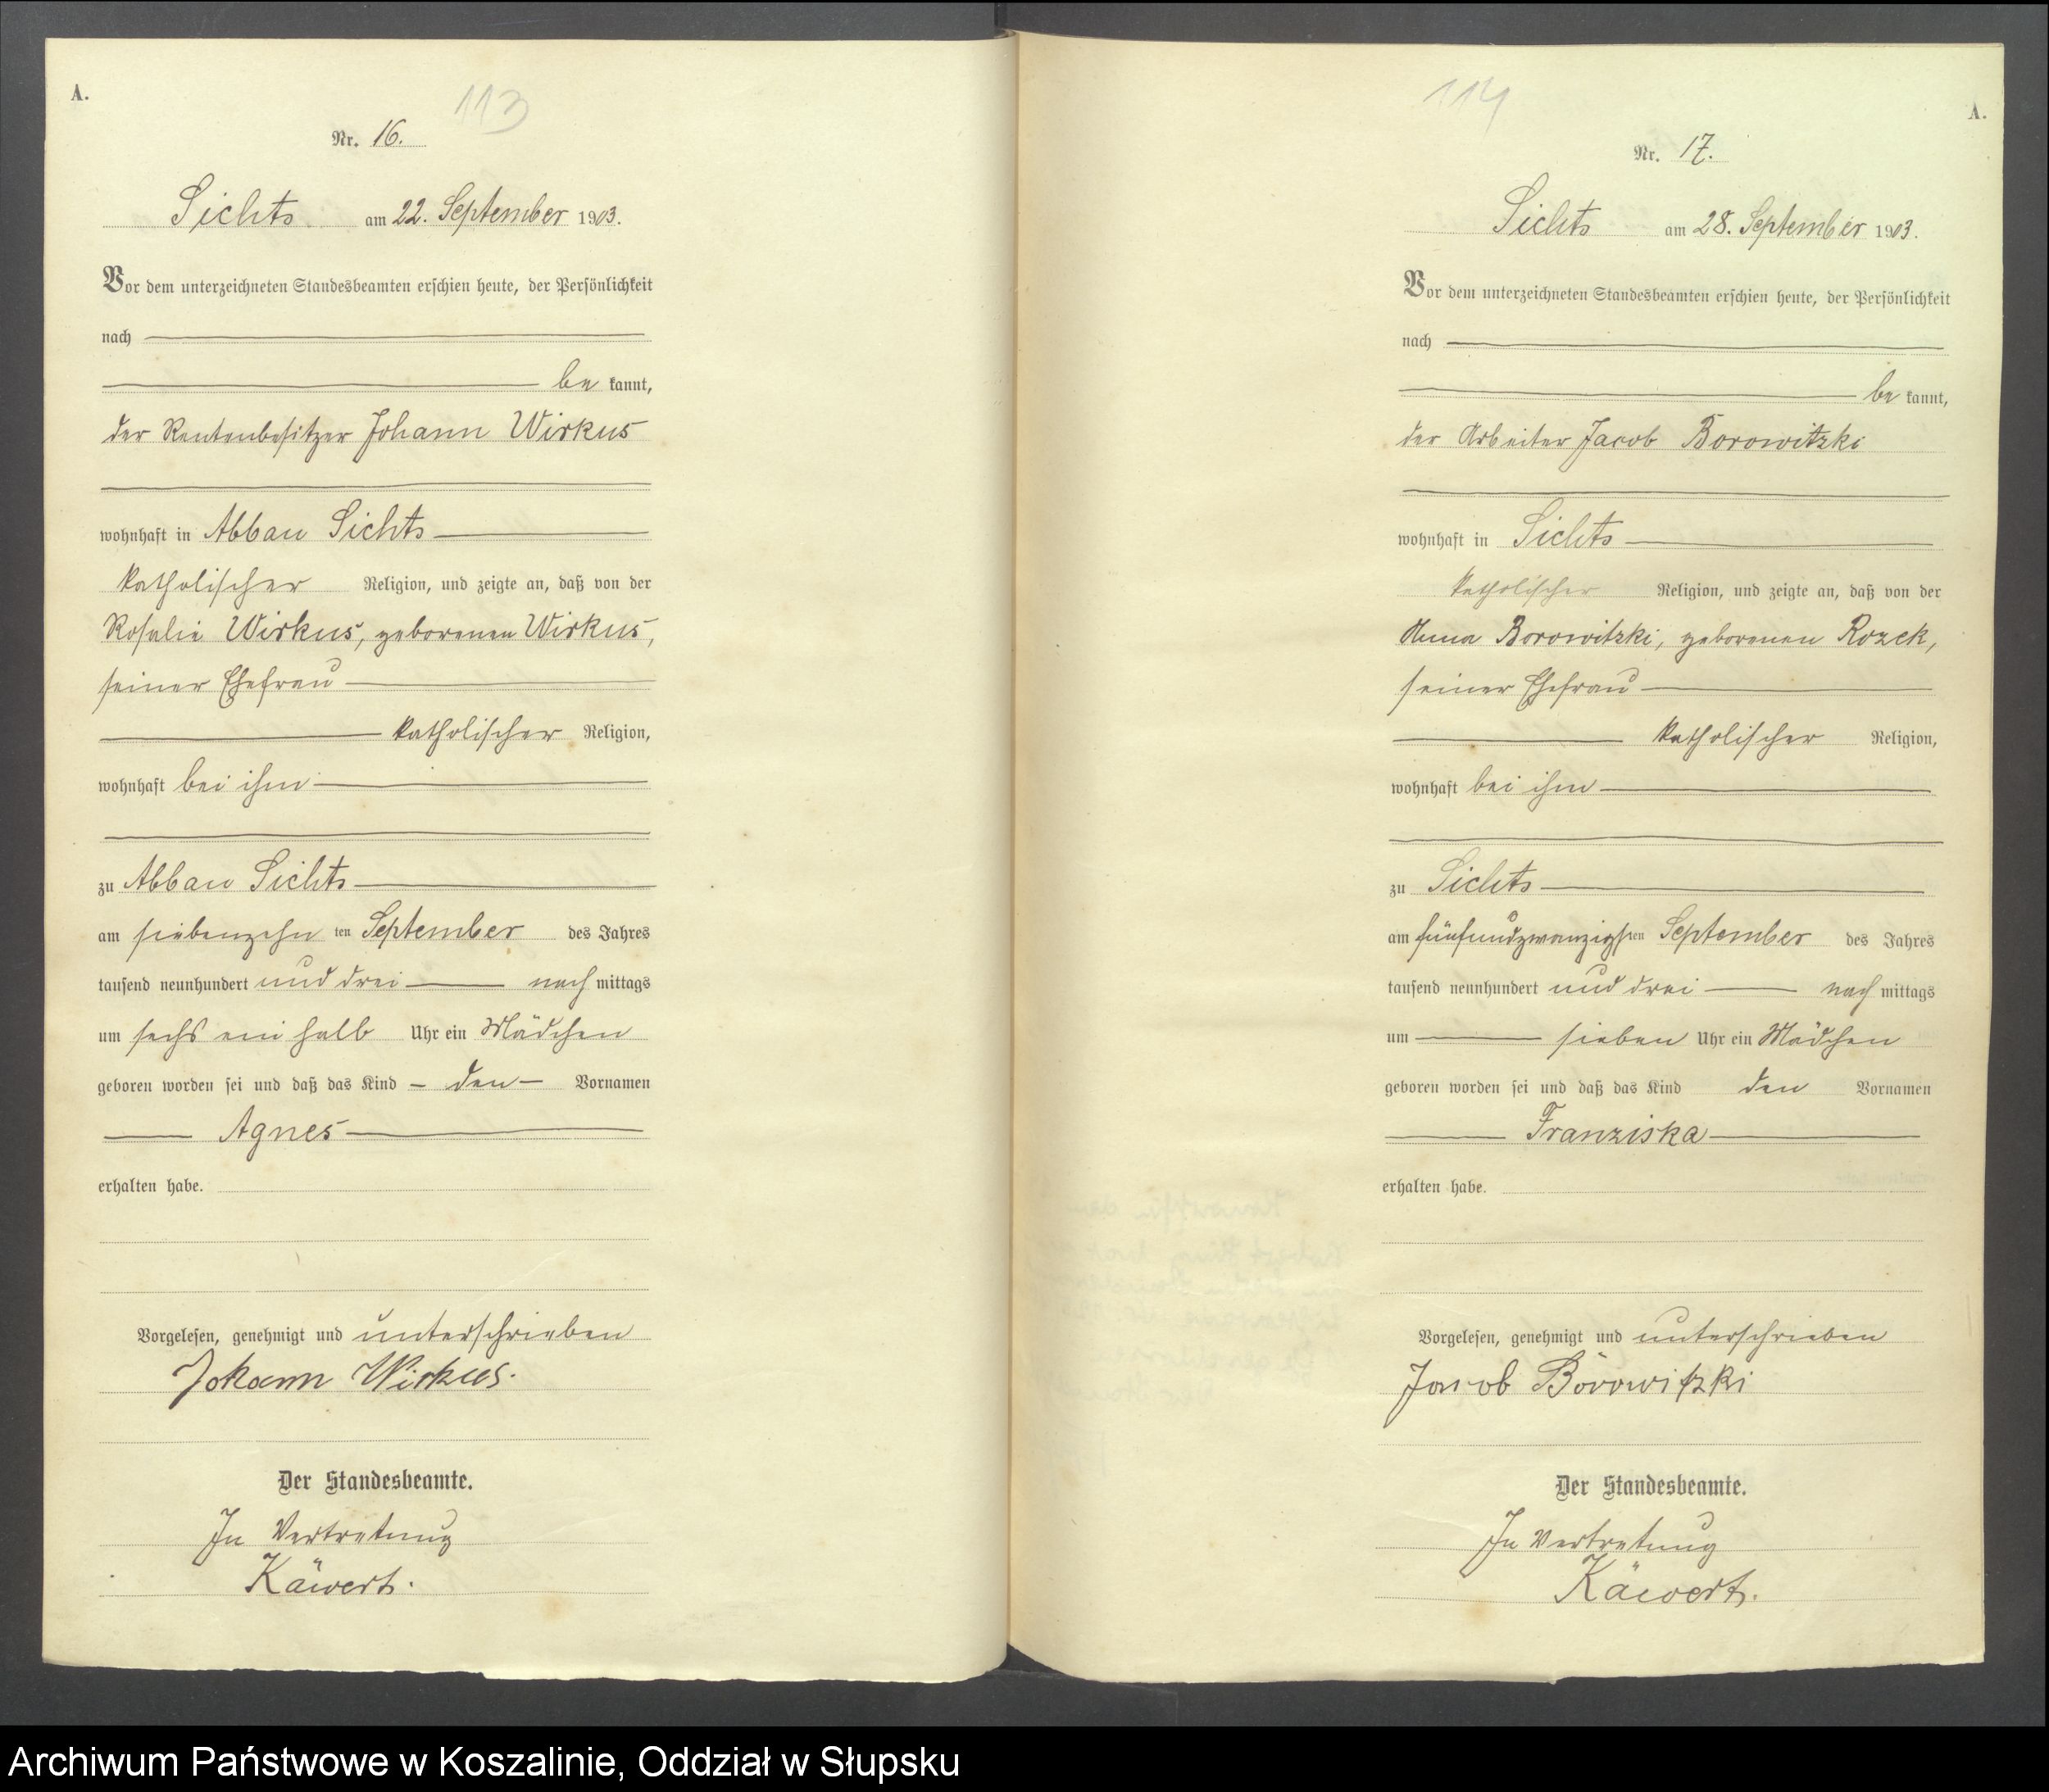 A.
113
Nr. 16.
Sichts am 22. September 1903.
Vor dem unterzeichneten Standesbeamten erschien heute, der Persönlichkeit
nach
be kannt,
der Rentenbesitzer Johann Wirkus
wohnhaft in Abbau Sichts
katholischer Religion, und zeigte an, daß von der
Rosalie Wirkus, geborenen Wirkus,
seiner Ehefrau
katholischer Religion,
wohnhaft bei ihm
zu Abbau Sichts
am siebenzehn ten September des Jahres
tausend neunhundert und drei nach mittags
um sechs ein halb Uhr ein Mädchen
geboren worden sei und daß das Kind – den – Vornamen
Agnes
erhalten habe.
Vorgelesen, genehmigt und unterschrieben
Johann Wirkus.
Der Standesbeamte.
In Vertretung
Käwert.
114
A.
Nr. 17.
Sichts am 28. September 1903.
Vor dem unterzeichneten Standesbeamten erschien heute, der Persönlichkeit
nach
be kannt,
der Arbeiter Jacob Borowitzki
wohnhaft in Sichts
katholischer Religion, und zeigte an, daß von der
Anna Borowitzki, geborenen Rozek,
seiner Ehefrau
katholischer Religion,
wohnhaft bei ihm
zu Sichts
am fünfundzwanzigsten September des Jahres
tausend neunhundert und drei nach mittags
um sieben Uhr ein Mädchen
geboren worden sei und daß das Kind den Vornamen
Franziska
erhalten habe.
Vorgelesen, genehmigt und unterschrieben
Jacob Borowitzki
Der Standesbeamte.
In Vertretung
Käwert.
Archiwum Państwowe w Koszalinie, Oddział w Słupsku